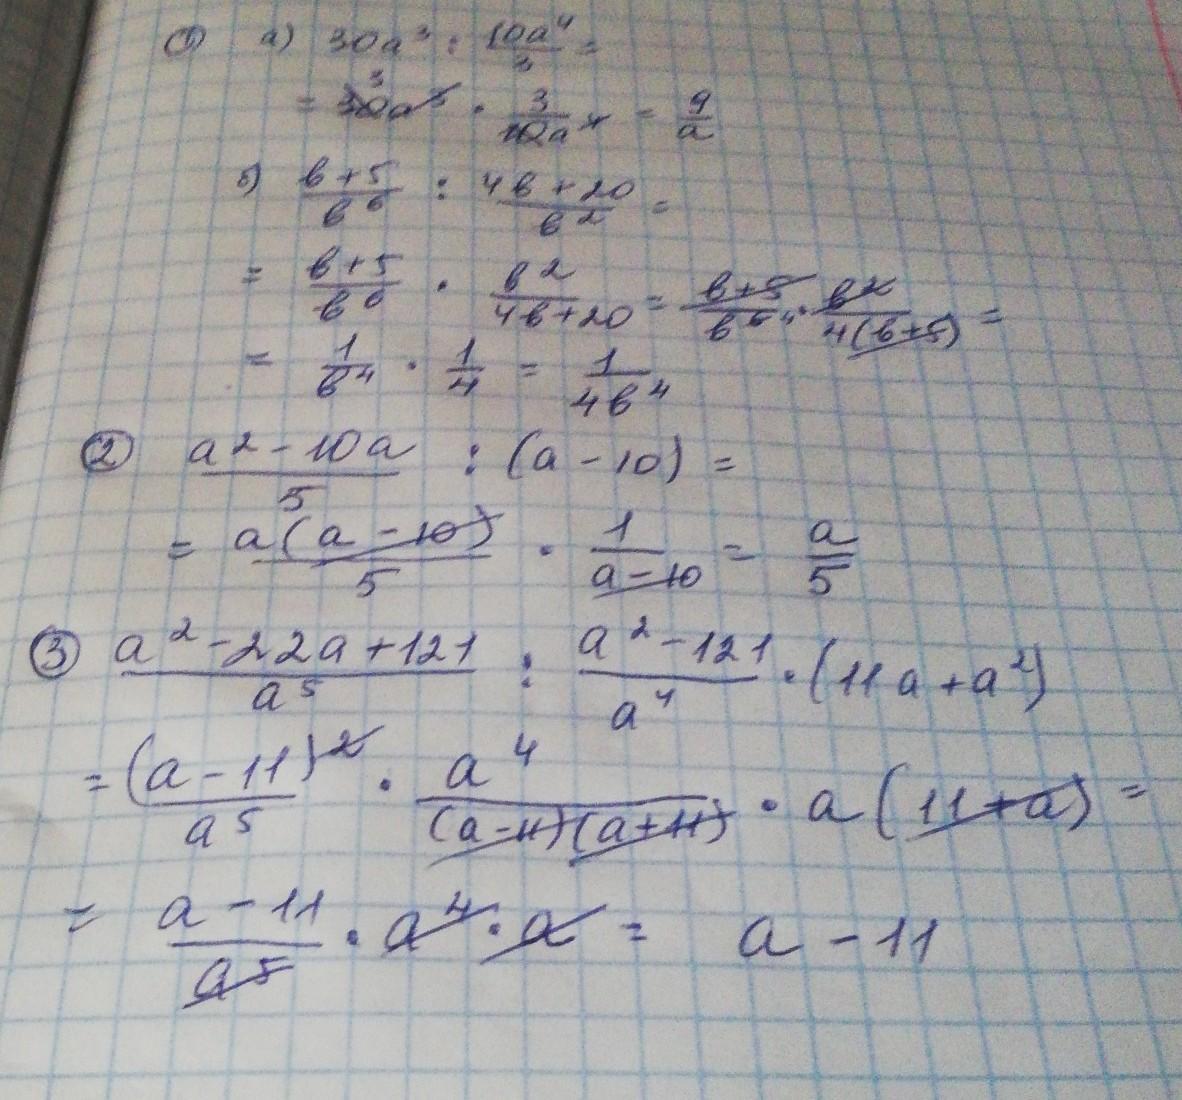 ① а) 30a³ : 10a⁴/3 =
= 30a³ · 3/10a⁴ = 9/a
б) b+5/b⁶ : 4b+20/b² =
= b+5/b⁶ · b²/4b+20 = b+5/b⁶ · b²/4(b+5) =
= 1/b⁴ · 1/4 = 1/4b⁴
② a²-10a/5 : (a-10) =
= a(a-10)/5 · 1/a-10 = a/5
③ a²-22a+121/a⁵ : a²-121/a⁴ · (11a+a²)
= (a-11)²/a⁵ · a⁴/(a-11)(a+11) · a(11+a) =
= a-11/a⁵ · a⁴ · a = a-11